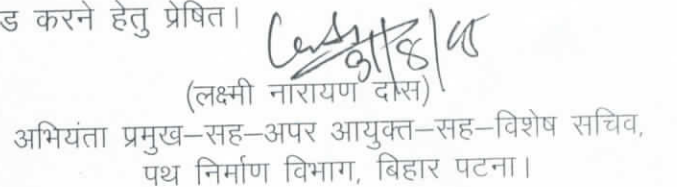 ड करने हेतु प्रेषित।
(लक्ष्मी नारायण दास)
अभियंता प्रमुख–सह–अपर आयुक्त–सह–विशेष सचिव,
पथ निर्माण विभाग, बिहार पटना।